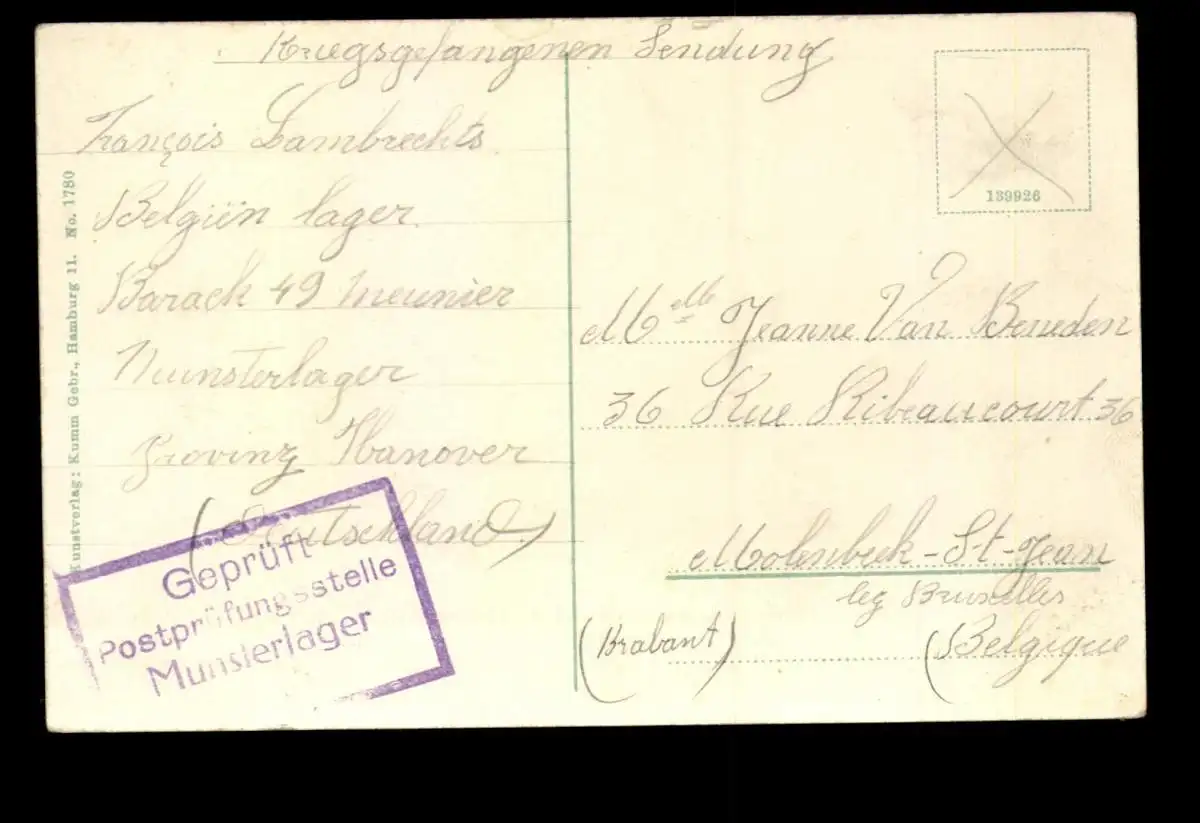 Kriegsgefangenen Sendung
François Lambrechts
Belgiën lager
Barack 49 Meunier
Munsterlager
Provinz Hanover
(Deutschland)
Geprüft
Postprüfungsstelle
Munsterlager
Kunstverlag: Kumm Gebr., Hamburg 11. No. 1780
139926
Melle Jeanne Van Beneden
36 Rue Ribeaucourt 36
Molenbeek-St-Jean
lez Bruxelles
(Brabant)
(Belgique